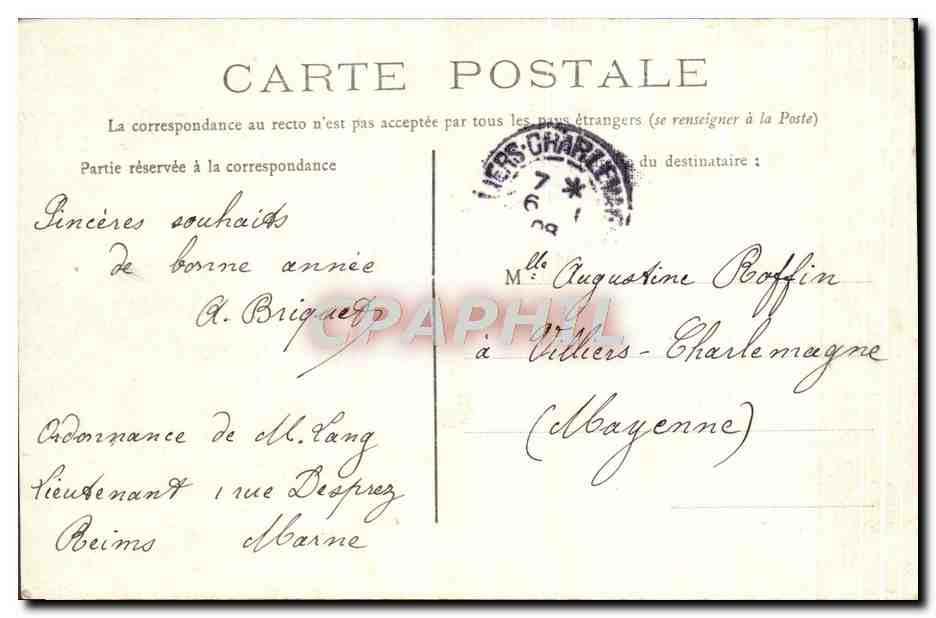 CARTE POSTALE
La correspondance au recto n'est pas acceptée par tous les pays étrangers (se renseigner à la Poste)
Partie réservée à la correspondance
Sincères souhaits
de bonne année
A. Briquet
Ordonnance de M. Lang
Lieutenant 1 rue Desprez
Reims Marne
du destinataire :
LIERS-CHARLEMA
7 *
6 1
08
Mlle Augustine Roffin
à Villiers-Charlemagne
(Mayenne)
CPAPHIL